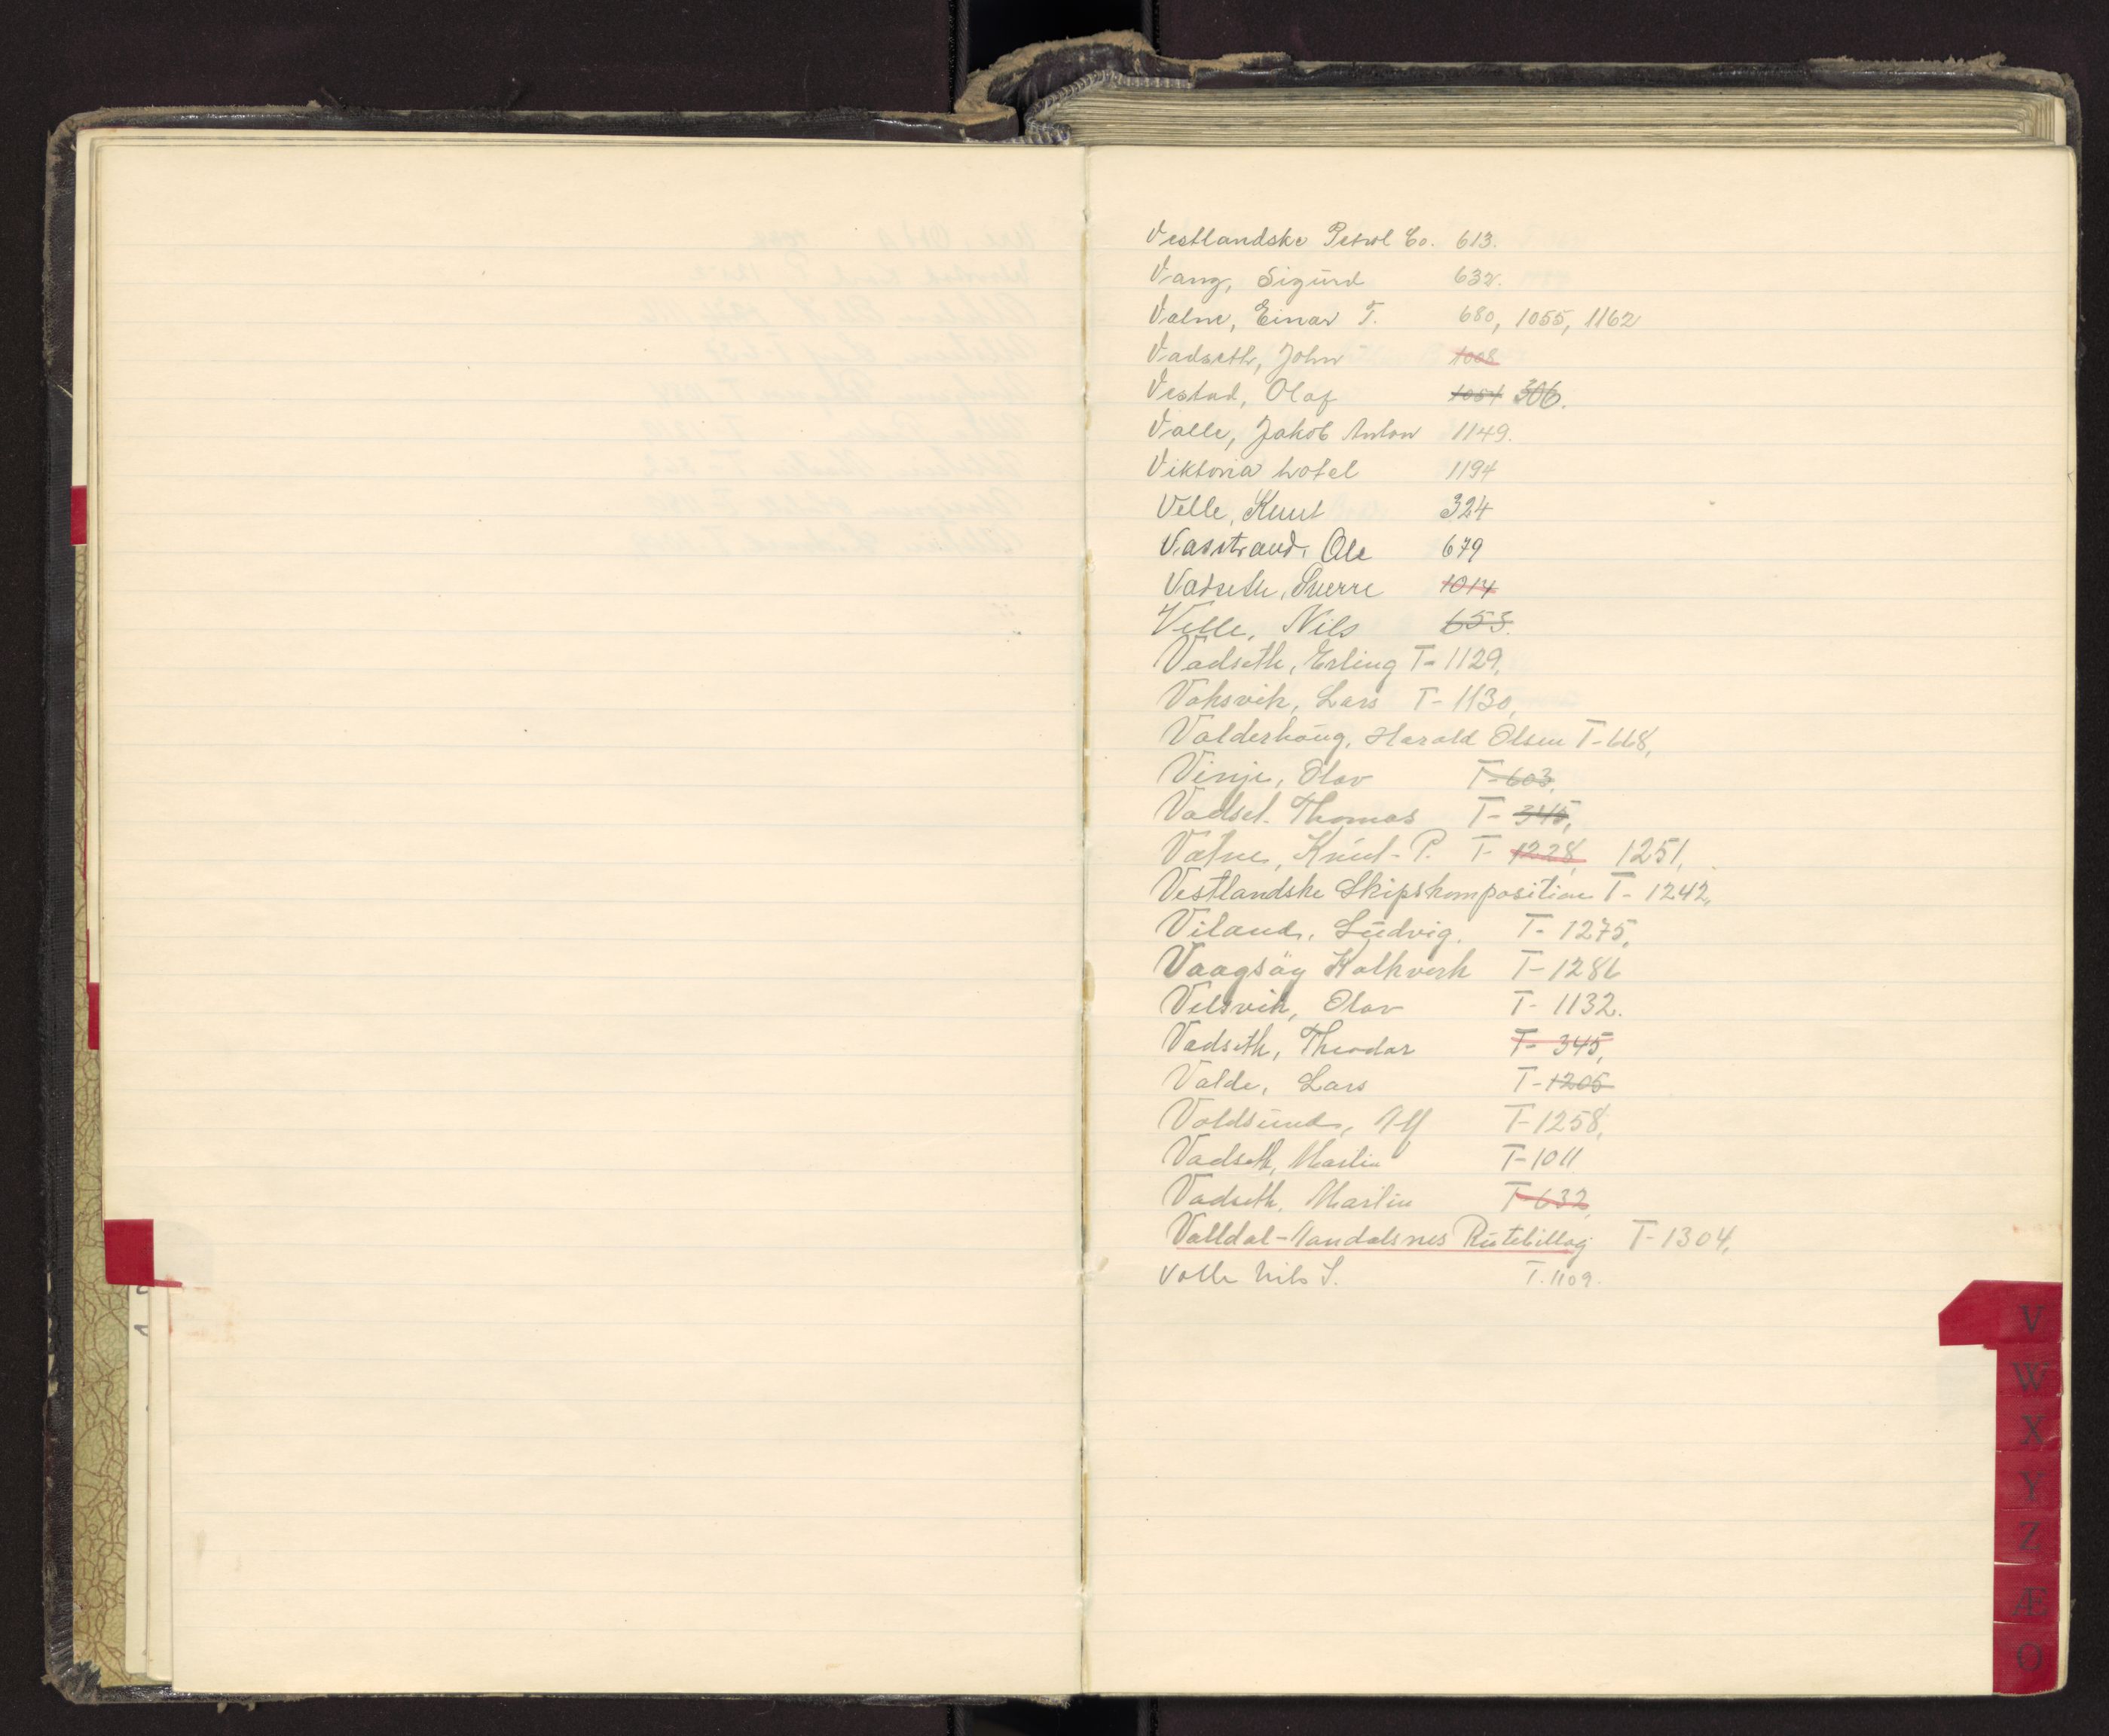 Vestlandske Petrol Co. 613.
Vang, Sigurd 632.
Vatne, Einar T. 680, 1055, 1162
Vadseth, John 1008
Vestad, Olaf 1084 306.
Valle, Jakob Anton 1149.
Viktoria hotel 1194
Velle, Knut 324
Vasstrand, Ole 679
Vadseth, Sverre 1014
Velle, Nils 653.
Vadseth, Erling T-1129,
Voksvik, Lars T-1130,
Valderhaug, Harald Olsen T-668,
Vinje, Olav T-603,
Vadset. Thomas T-345,
Vatne, Knut-P. T-1228, 1251,
Vestlandske Skipskomposition T-1242,
Viland, Ludvig. T-1275,
Vaagsöy Kalkverk T-1286
Velsvik, Olav T-1132.
Vadseth, Theodor T-345,
Valde, Lars T-1205
Voldsund, Alf T-1258,
Vadseth, Martin T-1011
Vadseth, Martin T-632,
Valldal-Aandalsnes Rutebillag T-1304,
Valle Nils S. T.1109.
V
W
X
Y
Z
Æ
O